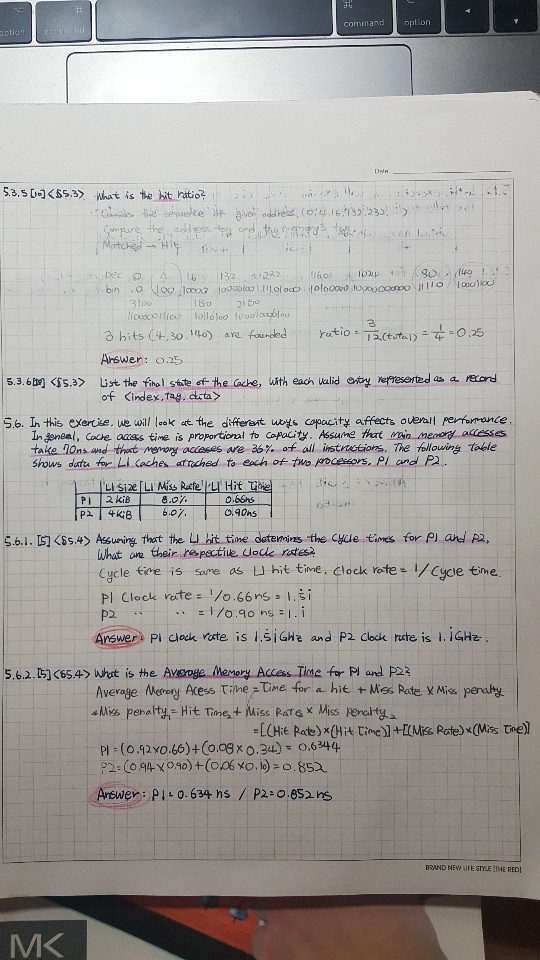 option
command
command
option
Date.
5.3.5 [10] <§5.3> What is the hit ratio?
Consider the sequence the given address, (0, 4, 16, 132, 232,
Compare the address tag and the
Matched → Hit
Dec 0 4 16 132 232 160 1024 80 140
bin 0 100 10000 10000100 11101000 10100000 10000000000 11110 10001100
3100 180 2180
110000011100 10110100 100010000100
3 hits (4, 30, 140) are founded ratio = 3/12(total) = 1/4 = 0.25
Answer: 0.25
5.3.6 [10] <§5.3> List the final state of the cache, with each valid entry represented as a record
of <index, tag, data>
5.6. In this exercise, we will look at the different ways capacity affects overall performance.
In general, cache access time is proportional to capacity. Assume that main memory accesses
take 70ns and that memory accesses are 36% of all instructions. The following table
shows data for L1 caches attached to each of two processors, P1 and P2.
L1 Size L1 Miss Rate L1 Hit Time
P1 2 KiB 8.0% 0.66ns
P2 4 KiB 6.0% 0.90ns
5.6.1. [5] <§5.4> Assuming that the L1 hit time determines the cycle times for P1 and P2,
What are their respective clock rates?
Cycle time is same as L1 hit time, Clock rate = 1/Cycle time.
P1 Clock rate = 1/0.66ns = 1.5̇1̇
P2 〃 〃 = 1/0.90 ns = 1.1̇
Answer: P1 clock rate is 1.5̇1̇GHz and P2 clock rate is 1.1̇GHz.
5.6.2. [5] <§5.4> What is the Average Memory Access Time for P1 and P2?
Average Memory Acess Time = Time for a hit + Miss Rate × Miss penalty
*Miss penalty₁ = Hit Time₂ + Miss Rate₂ × Miss Penalty₂
= [(Hit Rate)×(Hit Time)] + [(Miss Rate)×(Miss Time)]
P1 = (0.92×0.66)+(0.08×0.34) = 0.6344
P2 = (0.94×0.90)+(0.06×0.10) = 0.852
Answer: P1 = 0.634 ns / P2 = 0.852 ns
BRAND NEW LIFE STYLE [THE RED]
MK